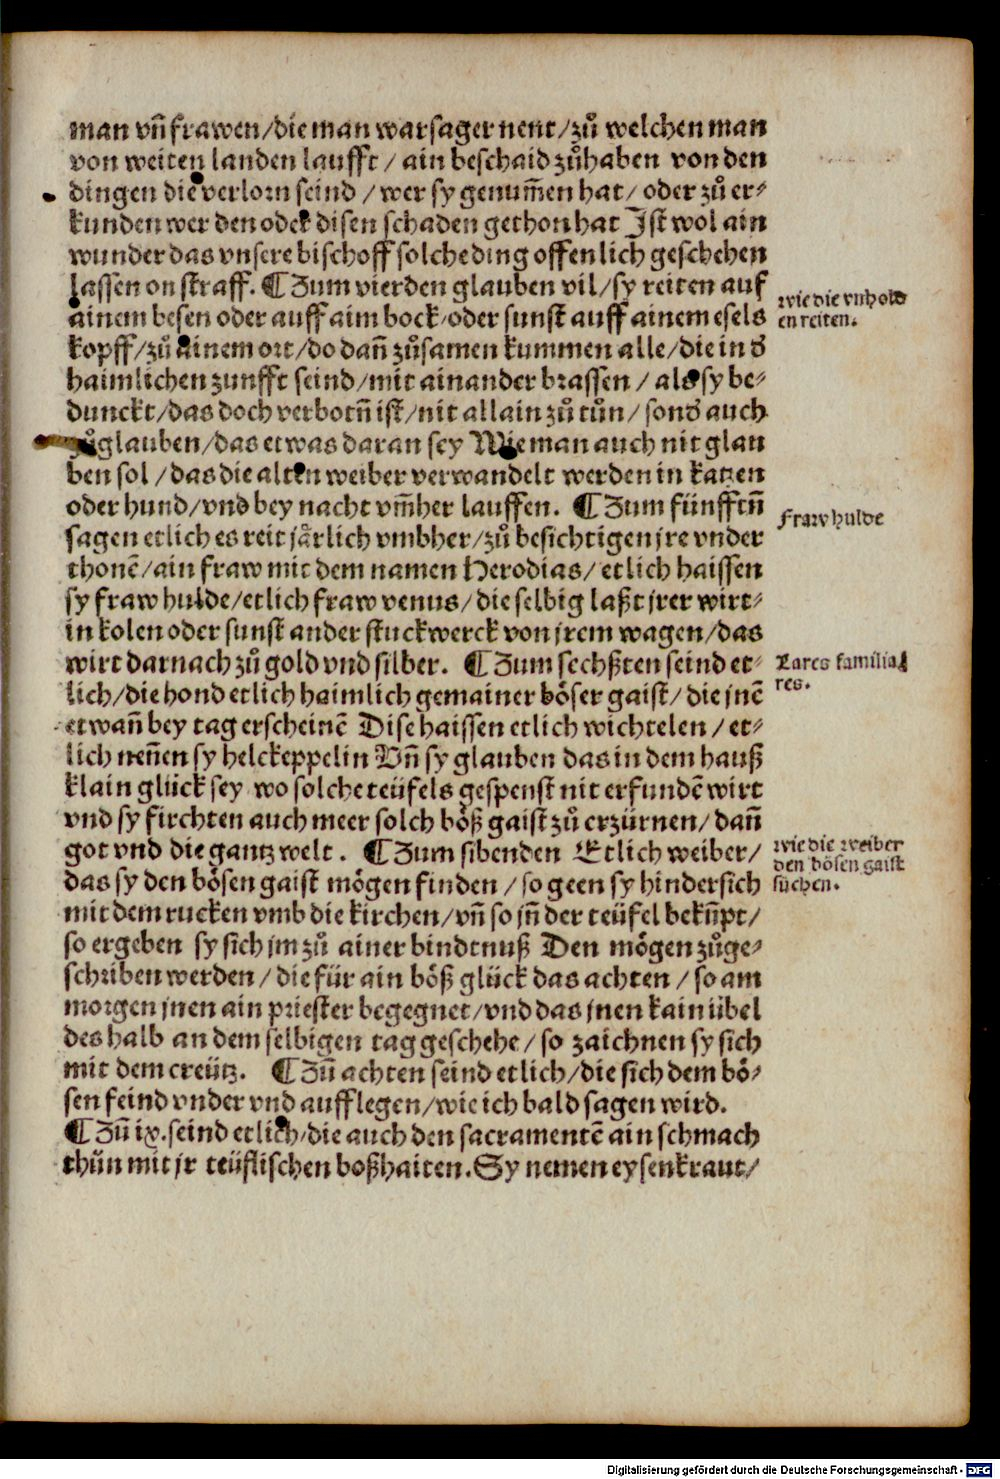 man vn̄ frawen/die man warsager nent/zů welchen man
von weiten landen laufft / ain beschaid zůhaben von den
dingen die verlorn seind / wer sy genum̄en hat/ oder zů er⸗
kunden wer den oder disen schaden gethon hat Ist wol ain
wunder das vnsere bischoff solche ding offenlich geschehen
lassen on straff. ¶ Zum vierden glauben vil/sy reiten auf
wie die vnhold
ainem besen oder auff aim bock/oder sunst auff ainem esels
en reiten.
kopff/zů ainem ort/do dan̄ zůsamen kummen alle/die in d̕
haimlichen zunfft seind/mit ainander brassen / als sy be⸗
dunckt/das doch verbotn̄ ist/nit allain zů tůn/ sond̕ auch
zůglauben/das etwas daran sey Wie man auch nit glau
ben sol /das die alten weiber verwandelt werden in katzen
oder hund/vnd bey nacht vm̄her lauffen. ¶ Zum fünfftn̄
Fraw hulde
sagen etlich es reit jårlich vmbher/zů besichtigen jre vnder
thonē/ain fraw mit dem namen Herodias/etlich haissen
sy fraw hulde/etlich fraw venus/die selbig laßt jrer wirt⸗
in kolen oder sunst ander stuckwerck von jrem wagen/das
wirt darnach zů gold vnd silber. ¶ Zum sechßten seind et⸗
Lares familia
lich/die hond etlich haimlich gemainer böser gaist/die jnē
res.
etwan̄ bey tag erscheinē Dise haissen etlich wichtelen / et⸗
lich nen̄en sy helckeppelin Vn̄ sy glauben das in dem hauß
klain glück sey wo solche teüfels gespenst nit erfundē wirt
vnd sy firchten auch meer solch böß gaist zů erzürnen/dan̄
got vnd die gantz welt . ¶ Zum sibenden Etlich weiber/
wie die weiber
den bösen gaist
das sy den bösen gaist mögen finden /so geen sy hindersich
süchen.
mit dem rucken vmb die kirchen/vn̄ so jn̄ der teüfel bekun̄pt/
so ergeben sy sich jm zů ainer bindtnuß Den mögen zůge⸗
schriben werden /die für ain böß glück das achten /so am
morgen jnen ain priester begegnet/vnd das jnen kain übel
des halb an dem selbigen tag geschehe/ so zaichnen sy sich
mit dem creütz. ¶ Zū achten seind etlich/die sich dem bö⸗
sen feind vnder vnd aufflegen/wie ich bald sagen wird.
¶ Zū ix.seind etlich/die auch den sacramentē ain schmach
thün mit jr teüflischen boßhaiten.Sy nemen eysenkraut/
Digitalisierung gefördert durch die Deutsche Forschungsgemeinschaft - DFG